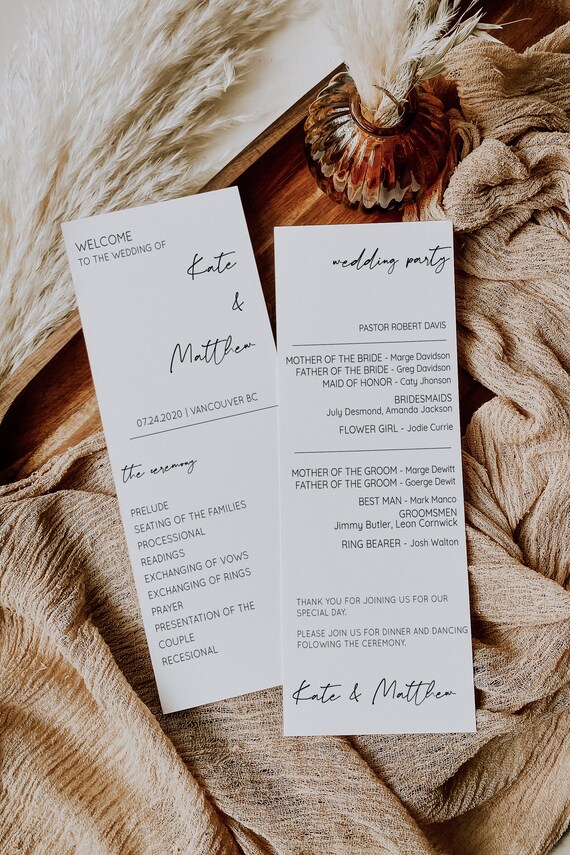 WELCOME
TO THE WEDDING OF
Kate
&
Matthew
07.24.2020 | VANCOUVER BC
the ceremony
PRELUDE
SEATING OF THE FAMILIES
PROCESSIONAL
READINGS
EXCHANGING OF VOWS
EXCHANGING OF RINGS
PRAYER
PRESENTATION OF THE
COUPLE
RECESIONAL
wedding party
PASTOR ROBERT DAVIS
MOTHER OF THE BRIDE - Marge Davidson
FATHER OF THE BRIDE - Greg Davidson
MAID OF HONOR - Caty Jhonson
BRIDESMAIDS
July Desmond, Amanda Jackson
FLOWER GIRL - Jodie Currie
MOTHER OF THE GROOM - Marge Dewitt
FATHER OF THE GROOM - Goerge Dewit
BEST MAN - Mark Manco
GROOMSMEN
Jimmy Butler, Leon Cornwick
RING BEARER - Josh Walton
THANK YOU FOR JOINING US FOR OUR
SPECIAL DAY.
PLEASE JOIN US FOR DINNER AND DANCING
FOLOWING THE CEREMONY.
Kate & Matthew